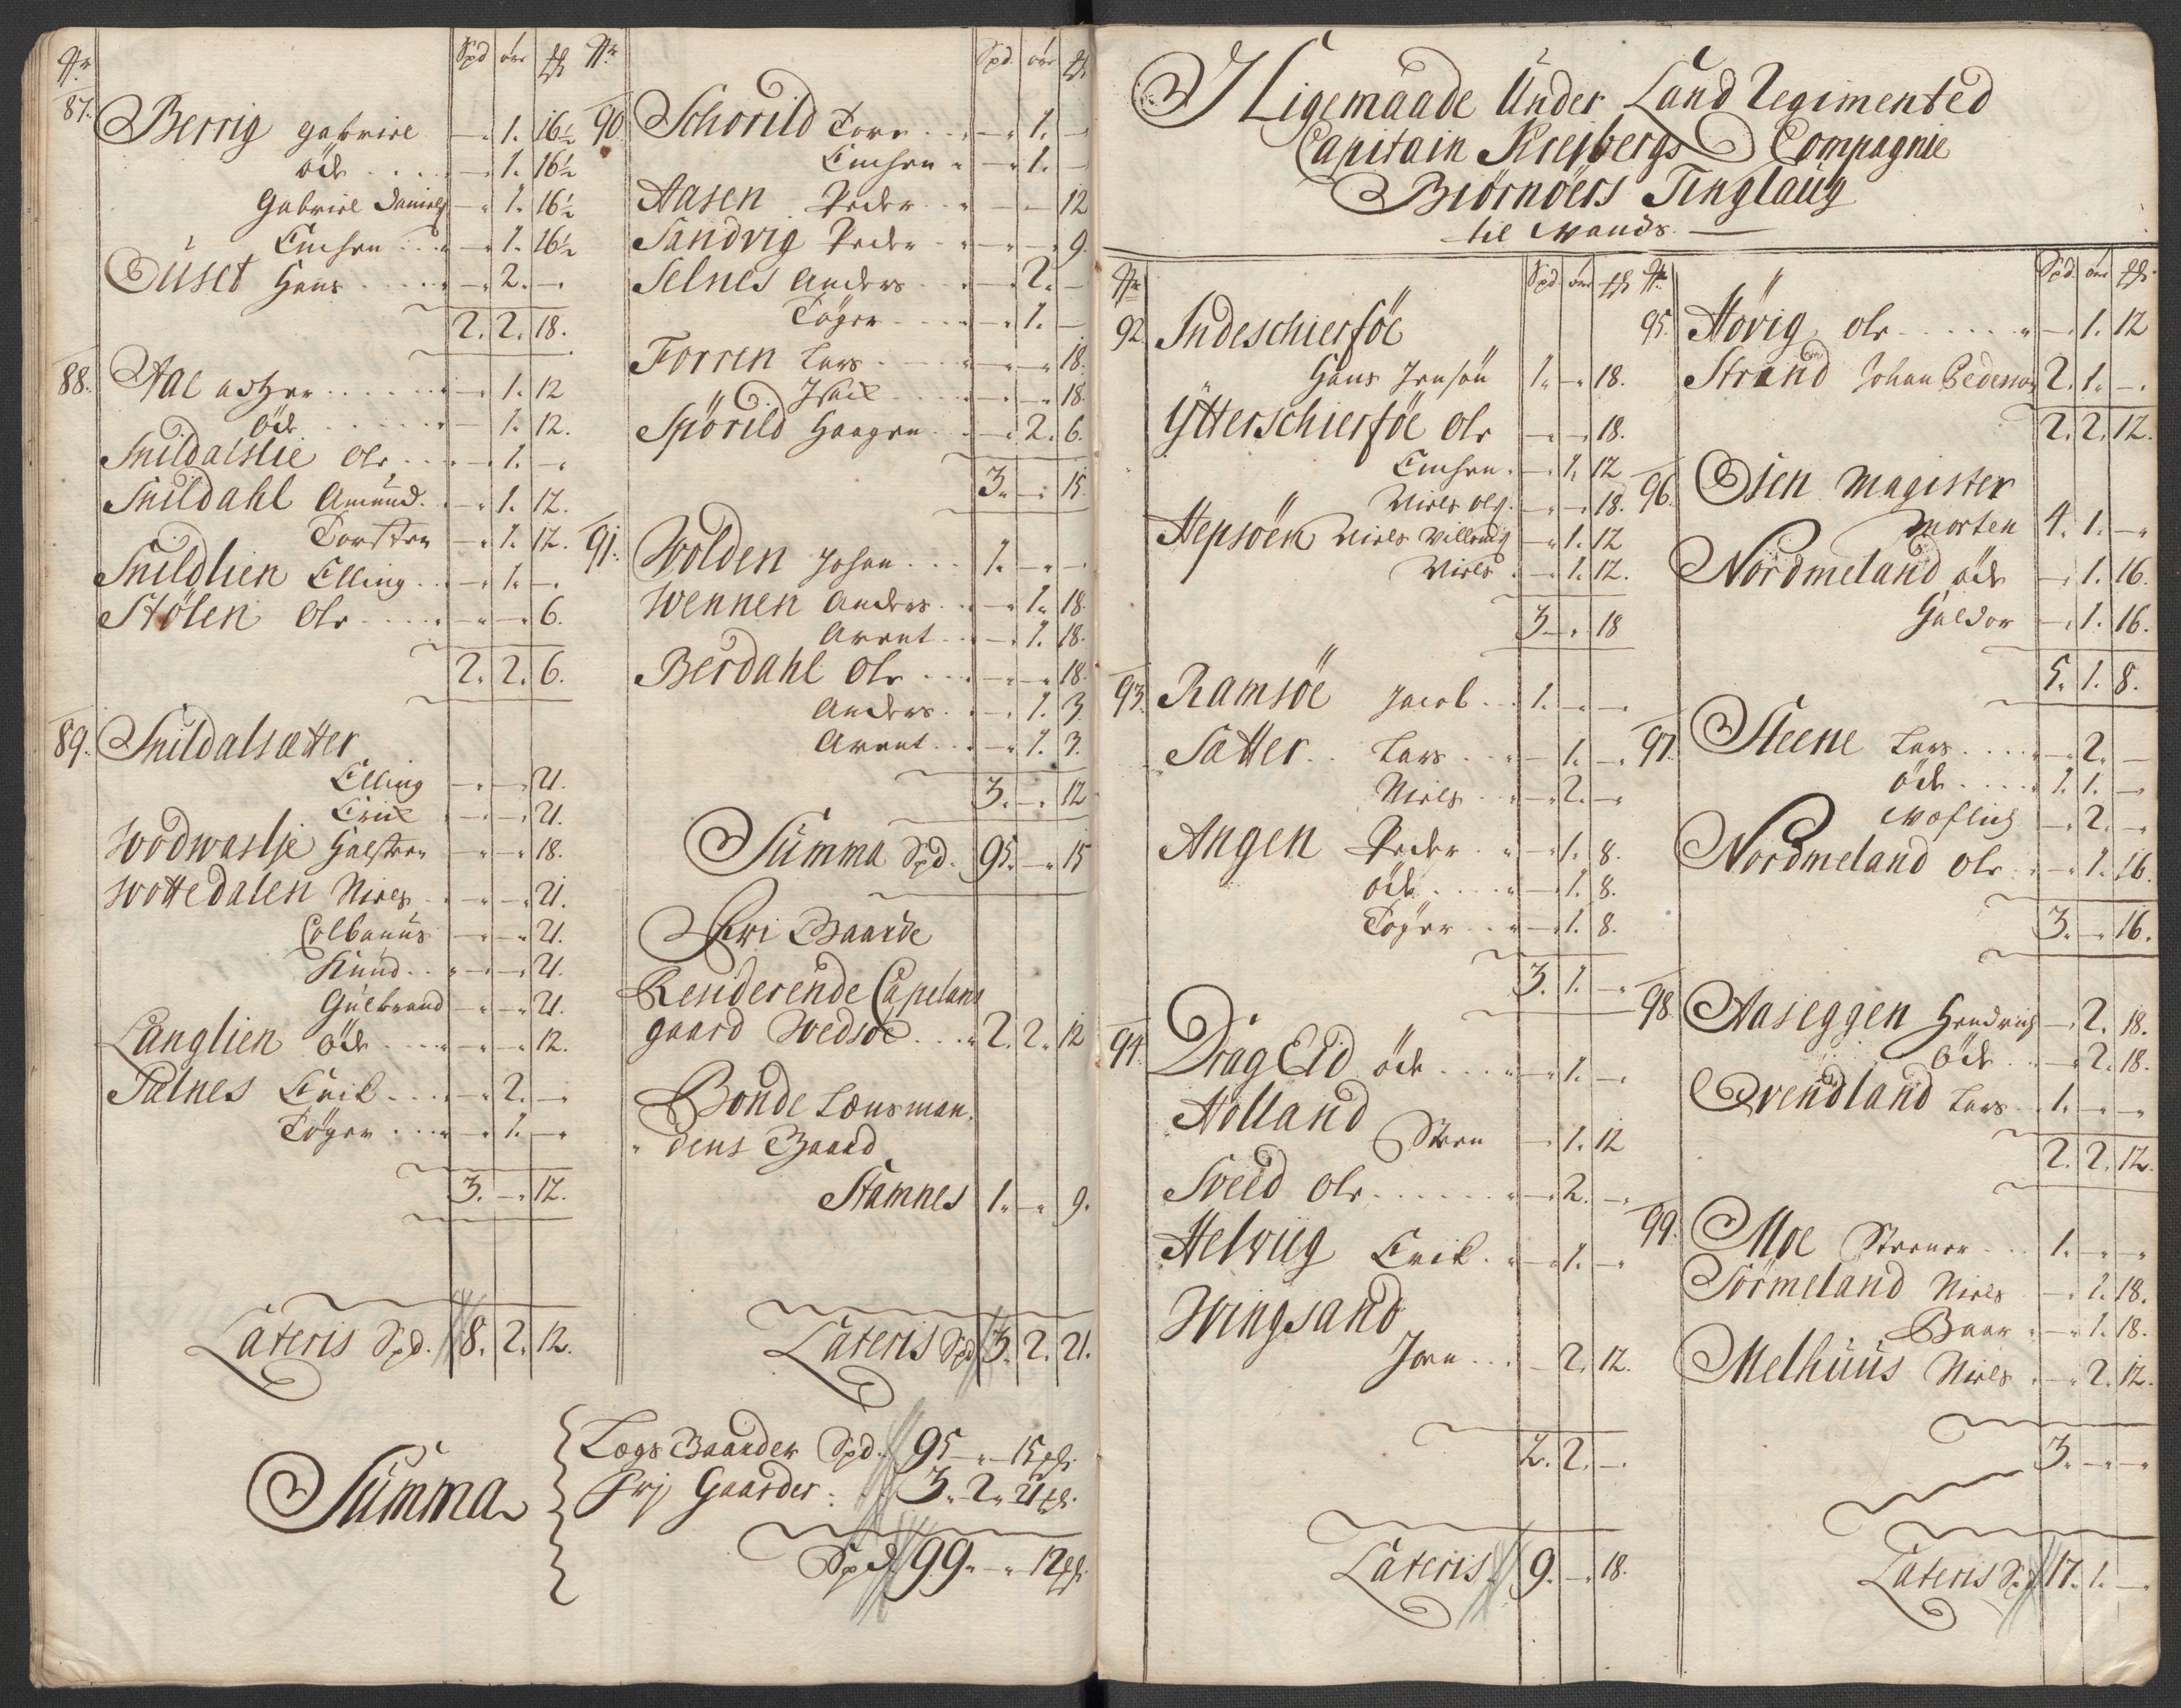 No Spd ort ß
87. Berrig Gabriel — 1. 16½
öde . . . . — 1. 16½
Gabriel Daniels — 1. 16½
Enchen . . — 1. 16½
Öuset Hans . . . . — 2. —
2. 2. 18.
88. Aae . . . . — 1. 12
öde . . . . — 1. 12.
Snildalslie Ole . . — 1. —
Snildahl Amund. . — 1. 12.
Torsten — 1. 12.
Snildlien Elling . . — 1. —
Stølen Ole . . . . — — 6.
2. 2. 6.
89. Snildalsætter
Elling — — 21.
Erich — — 21.
Wodwaslje Halsten — — 18.
Wottedalen Niels . — — 21.
Colbanus — — 21.
Knud . . — — 21.
Gulbrand — — 21.
Langlien öde . . . — — 12.
Salnes Erik . . . — 2. —
Töger . . . — 1. —
3. — 12.
Lateris Spd. 8. 2. 12.
No Spd. ort ß
90. Schorild Tore . . — 1. —
Enchen — 1. —
Aasen Peder . . — — 12
Sandvig Peder . . — — 9.
Selnes Anders . . — 2. —
Töger . . . — 1. —
Forren Lars . . . — — 18.
Isach . . . — — 18.
Spörild Haagen . — 2. 6.
3. — 15.
91. Wolden Johan . . . 1. — —
Wennen Anders . . — 1. 18.
Arent . . — 1. 18.
Berdahl Ole . . . — — 18.
Anders . . — 1. 3.
Arent . . — 1. 3.
3. — 12
Summa Spd. 95. — 15
Fri Gaarde
Residerende Capelans
gaard Wedsöe . . . 2. 2. 12
Bonde Lensman,
dens Gaard
Stamnes 1. — 9.
Lateris Spd 3. 2. 21.
Summa
Legs Gaarder Spd. 95 — 15 ß.
Frj Gaarder: 3. 2. 21 ß.
Spd. 99. — 12 ß.
I Ligemaade Under Land Regimented
Capitain Krejbergs Compagnie
Biörnöers Tinglaug
til Mands.
No Spd ort ß
92. Indeschierföe
Hans Jensön 1. — 18.
Ytterschierföe Ole — — 18.
Enchen . — 1. 12
Niels Ols. — — 18.
Hepsöen Niels Willemds — 1. 12
Niels . — 1. 12.
3. — 18
93. Ramsöe Jacob . . 1. — —
Sætter . . Lars . . — 1. —
Niels . . — 2. —
Angen Peder . . — 1. 8.
öde . . . . — 1. 8.
Töger . . — 1. 8.
3. 1. —
94. Drag Eid öde . . . — 1. —
Holland
Sten — 1. 12
Sveed Ole . . . . . — 2. —
Helviig Erik . — 1. —
Wingsand
Jon . . . — 2. 12.
2. 2. —
Lateris. 9. — 18.
No Spd ort ß
95. Hövig Ole . . . . . — 1. 12
Strand Johan Pederson 2. 1. —
2. 2. 12.
96. Osen Magister
Morten 4. 1. —
Nordmeland öde — 1. 16.
Haldor — 1. 16.
5. 1. 8.
97. Steene Lars . . . . — 2. —
öde . . . . 1. 1. —
— 2. —
Nordmeland Ole . . — 1. 16.
3. — 16.
98. Aaseggen Hendrich — 2. 18.
öde . . — 2. 18.
Qvendland Lars . . 1. — —
2. 2. 12.
99. Moe Steener . . . 1. — —
Sörmeland Niels — 1. 18.
Baar . — 1. 18.
Melhuus Niels . — 2. 12.
3. — —
Lateris Spd 17. 1. —